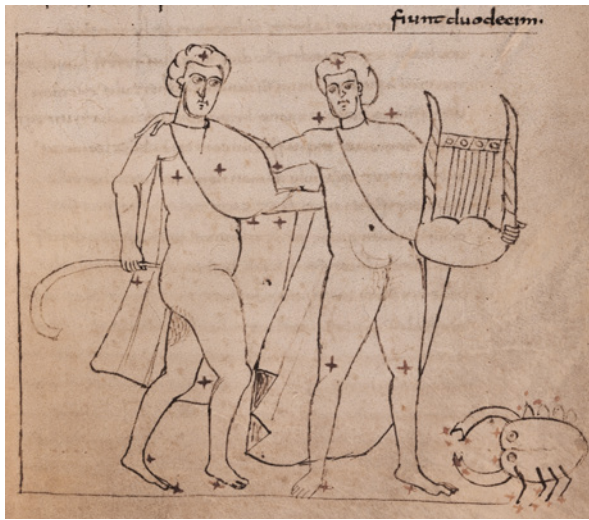 fiunt duodecim.